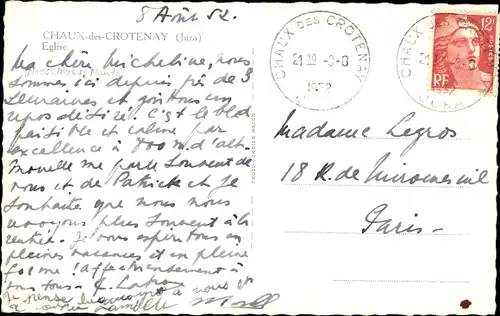 8 Août 52.
CHAUX-des-CROTENAY (Jura)
Eglise
Ma chère Micheline, nous
sommes ici depuis près de 3
semaines et goûtons un
repos désiré. C'est le bled
paisible et calme par
excellence à 700 m d'alt.
me parle souvent de
vous et de Patrick et je
souhaite que nous nous
voyions plus souvent à la
rentrée. Je vous espère tous en
pleines vacances et en pleine
forme ! affectueusement à
vous tous.
Je pense beaucoup à vous et
à votre famille
CHAUX DES CROTENAY
21 30 -8-8
1952
CHAUX DES
JURA
12F
RF
Madame Legros
18 R. de Miromesnil
Paris-